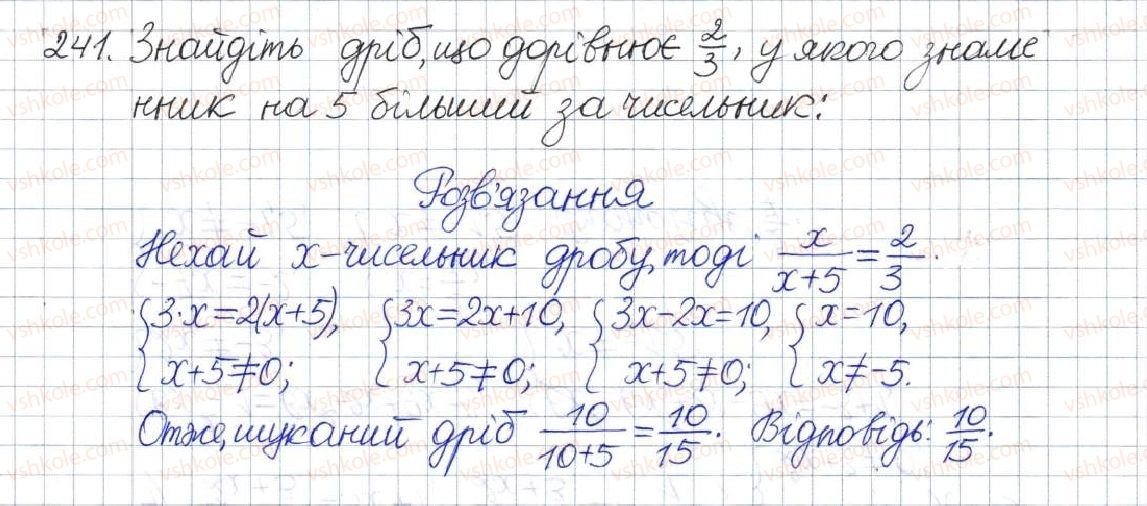 241. Знайдіть дріб, що дорівнює 2/3, у якого знаме
нник на 5 більший за чисельник:
Розв'язання
Нехай x-чисельник дробу, тоді x/(x+5) = 2/3.
{3·x=2(x+5), {3x=2x+10, {3x-2x=10, {x=10,
x+5≠0; x+5≠0; x+5≠0; x≠-5.
Отже, шуканий дріб 10/(10+5) = 10/15. Відповідь: 10/15.